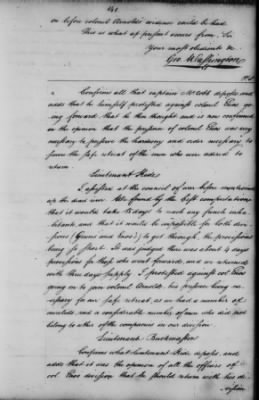 on before colonel Arnold's evidence could be had.
This is what at present occurs from, Sir,
Your most obedient &c
Geo. Washington
Confirms all that captain deposes, and
adds that he himself protested against colonel Enos
going forward, that he then thought and is now confirmed
in the opinion that the presence of colonel Enos was very
necessary to preserve the harmony and order necessary to
form the safe retreat of the men who were ordered to
return.
Lieutenant Hide
I assisted at the council of war before mentioned
up the dead river. We found by the best computation
that it would take 15 days to reach any french inha-
bitants and that it would be impossible for both divi-
sions (Greens and Enos's) to go through, the provisions
being so short. It was judged there was about 4 days
provisions for those who went forward, and we returned
with three days supply. I protested against col. Enos
going on to join colonel Arnold, his presence being ne-
cessary for our safe retreat, as we had a number of
invalids and a considerable number of men who did not
belong to either of the companies in our division.
Lieutenant Buckmaster
Confirms what lieutenant Hide deposes, and
adds that it was the opinion of all the officers of
col. Enos division that he should return with his di-
vision